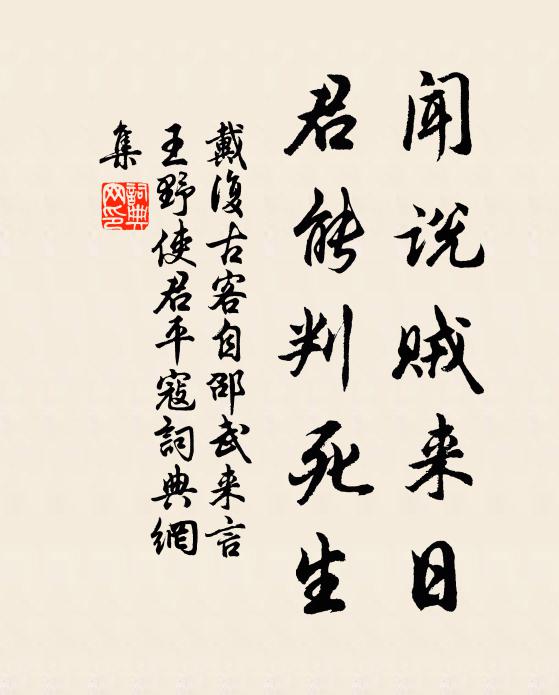 闻说贼来日
君能判死生
戴復古客自邵武来言
王野使君平寇詞典網
集
詞典
网印